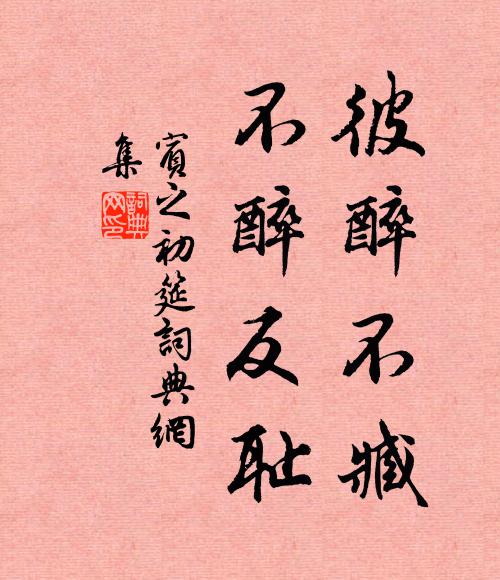 彼醉不臧
不醉反耻
賓之初筵詞典網
集
詞典
网印